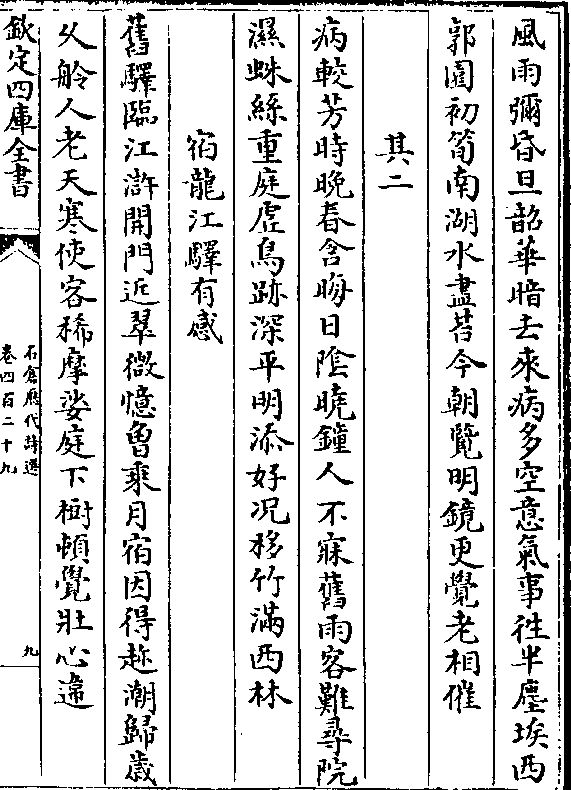 風雨彌昏旦韶華暗去來病多空意氣事往半塵埃西
郭園初筍南湖水盡苔今朝覽明鏡更覺老相催
其二
病較芳時晚春含晦日陰曉鐘人不寐舊雨客難尋院
濕蛛絲重庭虛鳥跡深平明添好况移竹滿西林
宿龍江驛有感
舊驛臨江滸開門近翠微憶曽乘月宿因得趂潮歸歲
久舲人老天寒使客稀摩娑庭下樹頓覺壯心違
欽定四庫全書
石倉歷代詩選
卷四百二十九
九